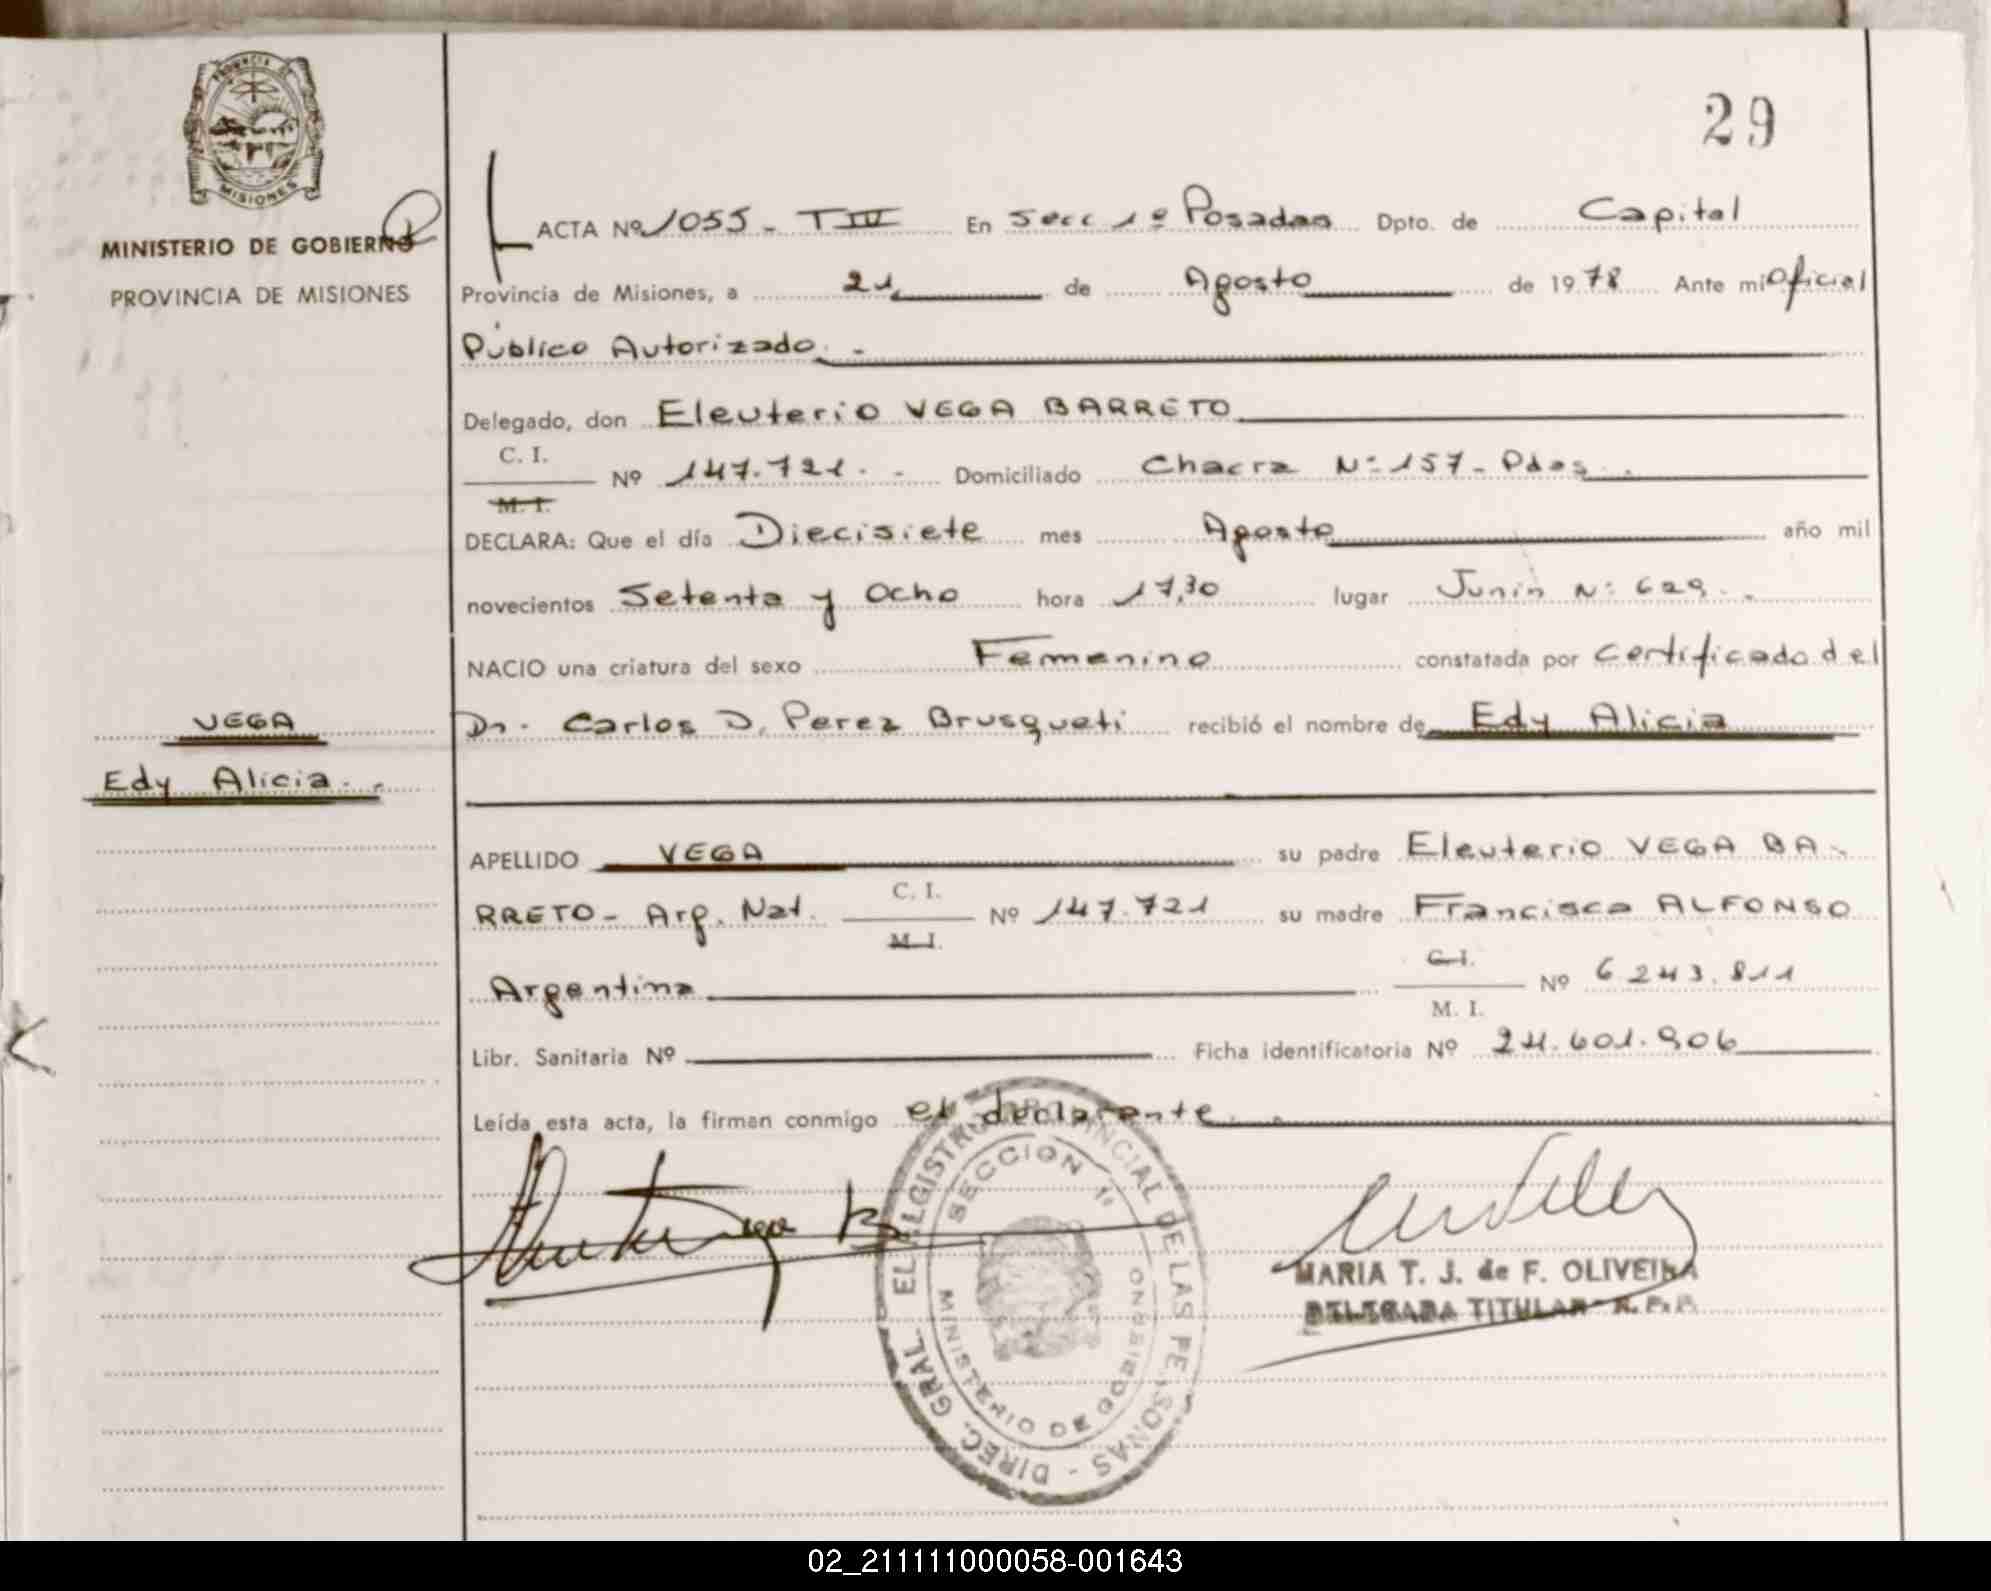 PROVINCIA DE
MISIONES
MINISTERIO DE GOBIERNO
PROVINCIA DE MISIONES
29
ACTA Nº 1055 - T III En Secc 1º Posadas Dpto. de Capital
Provincia de Misiones, a 21 de Agosto de 1978 Ante mi Oficial
Público Autorizado. -
Delegado, don Eleuterio VEGA BARRETO
C. I.
Nº 147.721. - Domiciliado Chacra Nº 157 - Pdas.
M. I.
DECLARA: Que el día Diecisiete mes Agosto año mil
novecientos Setenta y Ocho hora 17,30 lugar Junin Nº 629. -
NACIO una criatura del sexo Femenino constatada por Certificado del
VEGA
Dr. Carlos D. Perez Brusqueti recibió el nombre de Edy Alicia
Edy Alicia. -
APELLIDO VEGA su padre Eleuterio VEGA BA-
RRETO - Arg. Nat. C. I. Nº 147.721 su madre Francisca ALFONSO
M. I.
Argentina C. I. Nº 6.243.811
M. I.
Libr. Sanitaria Nº Ficha identificatoria Nº 24.601.906
Leída esta acta, la firman conmigo el declarante. -
DIREC. GRAL. EL REGISTRO PROVINCIAL DE LAS PERSONAS -
SECCION 1ª
MINISTERIO DE GOBIERNO
MARIA T. J. de F. OLIVEIRA
DELEGADA TITULAR R. P. P.
02_211111000058-001643